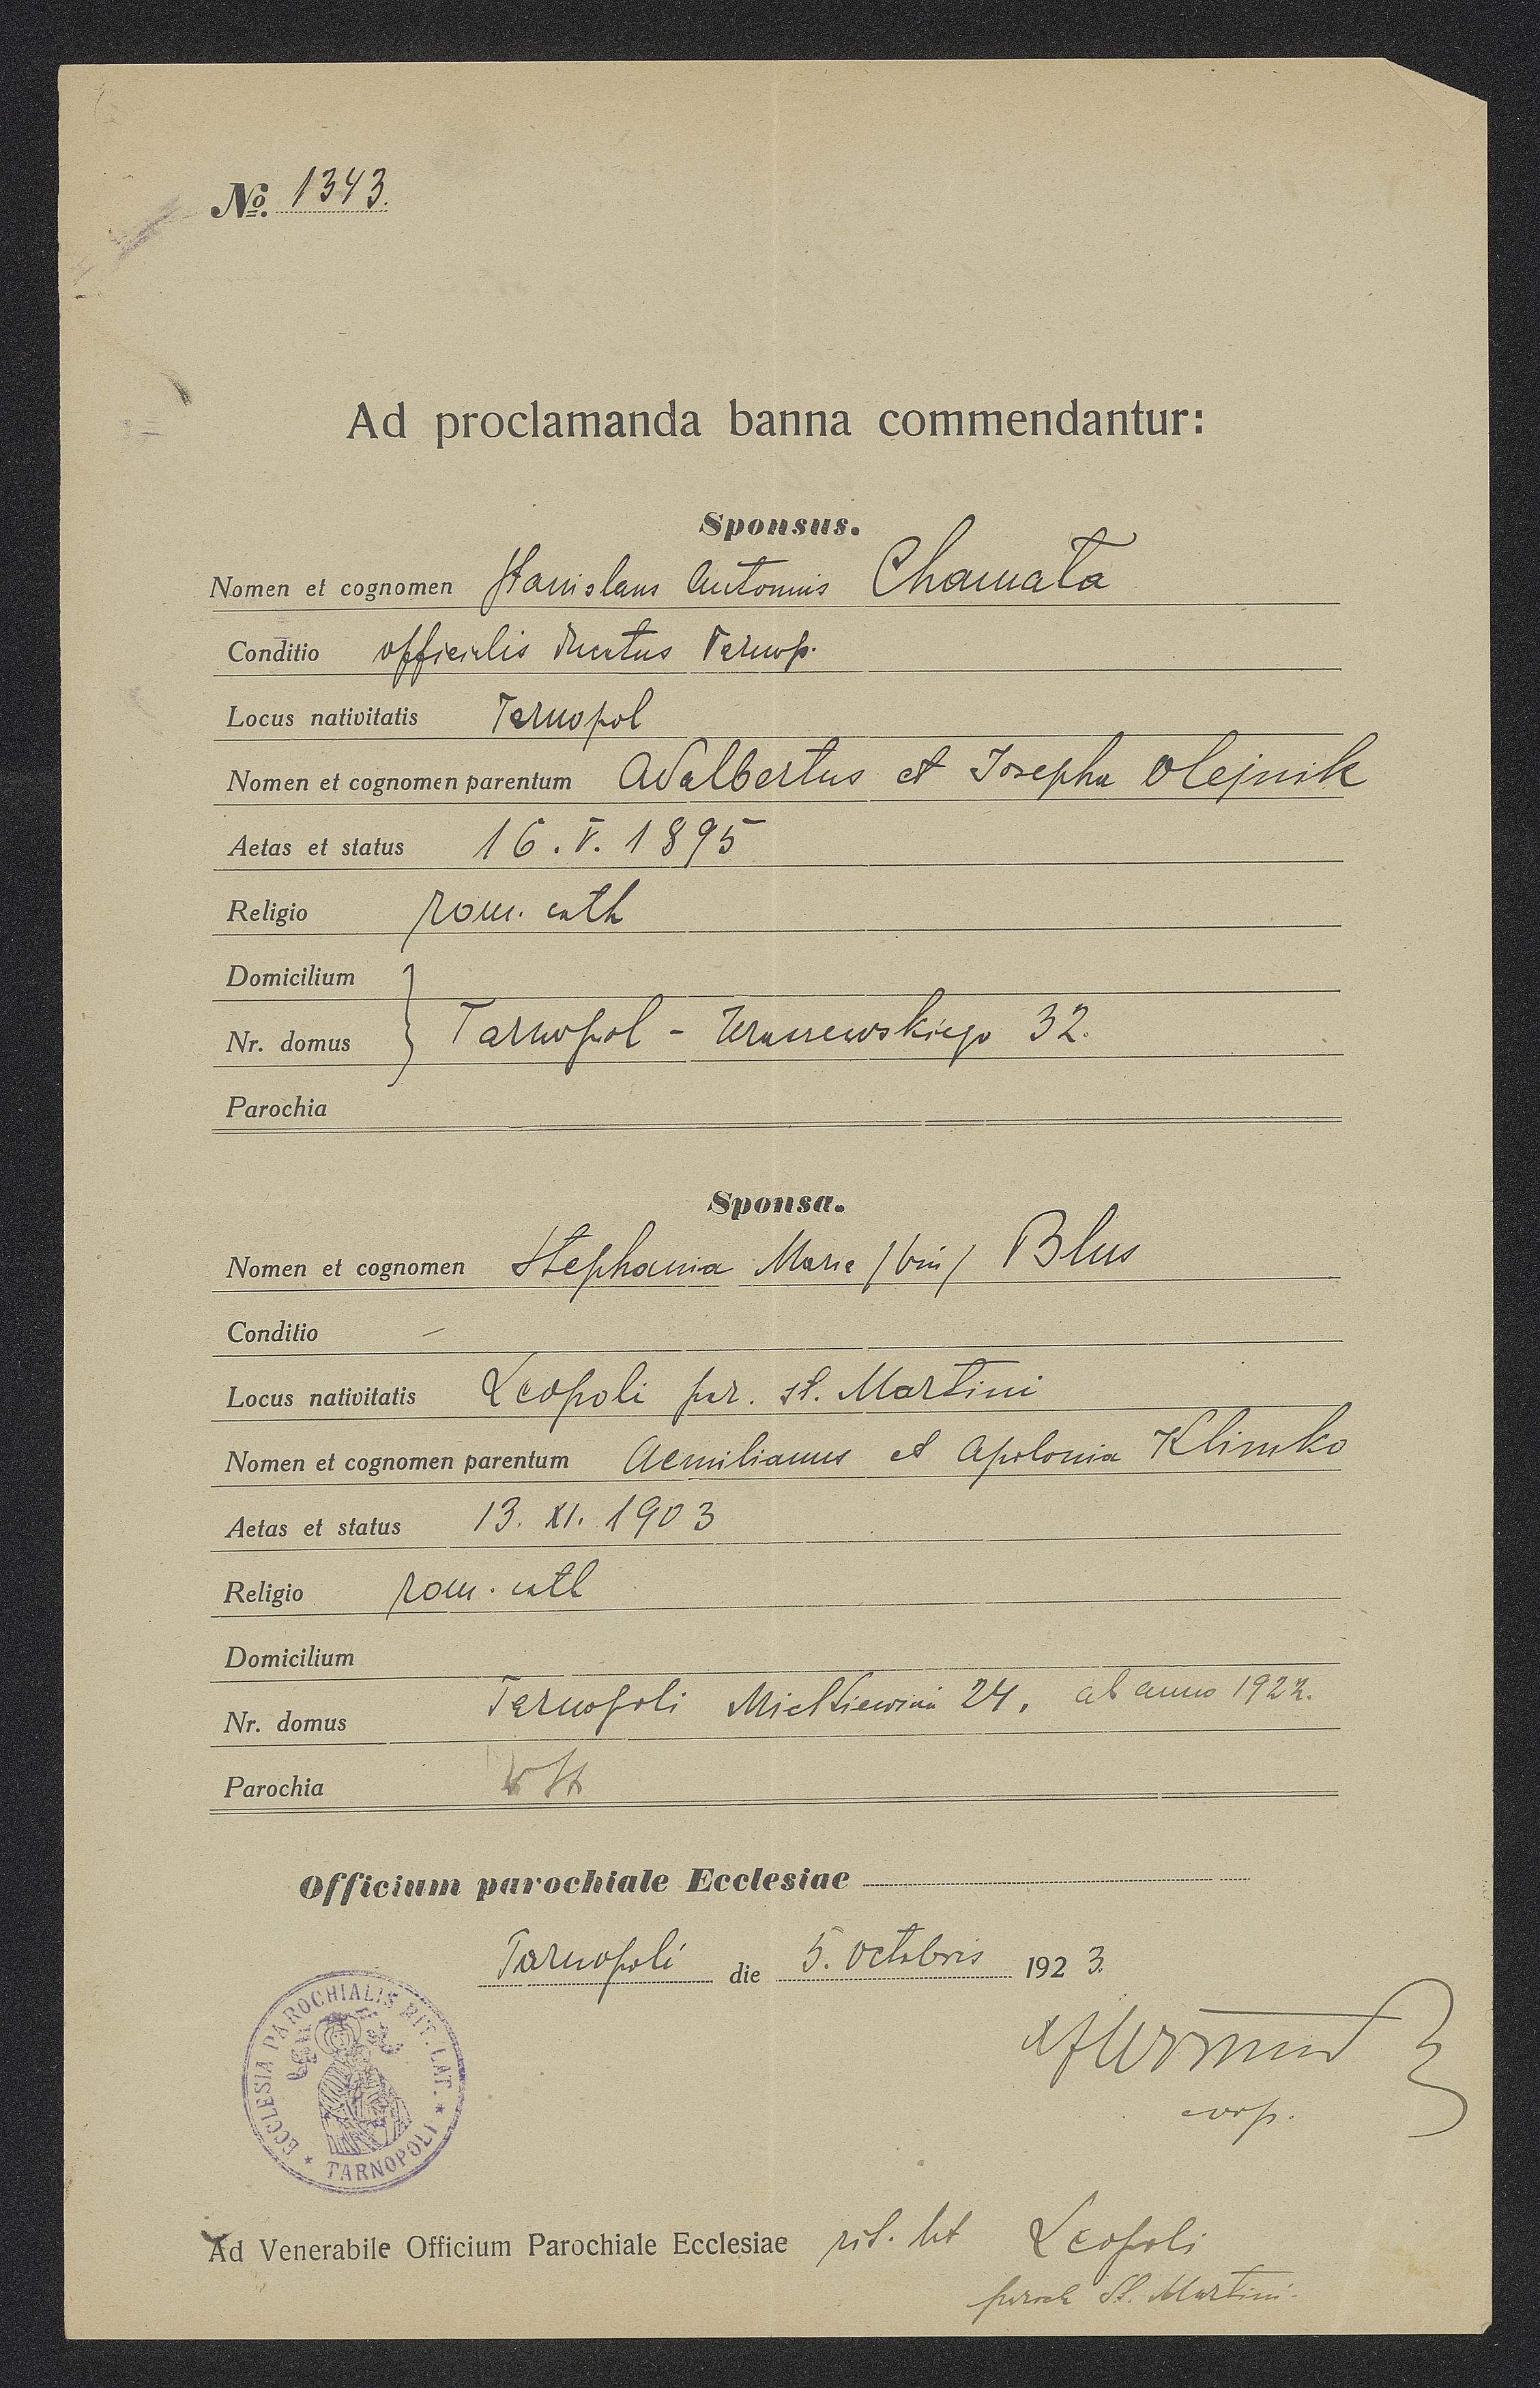 No. 1343.
Ad proclamanda banna commendantur:
Sponsus.
Nomen et cognomen Stanislaus Antonius Chamata
Conditio officialis Tarnop.
Locus nativitatis Tarnopol
Nomen et cognomen parentum Adalbertus et Josepha Olejnik
Aetas et status 16. V. 1895
Religio rom. cath
Domicilium
Nr. domus Tarnopol - 32.
Parochia
Sponsa.
Nomen et cognomen Stephania Maria /bin/ Blus
Conditio –
Locus nativitatis Leopoli par. st. Martini
Nomen et cognomen parentum Aemilianus et Apolonia Klimko
Aetas et status 13. XI. 1903
Religio rom. cath
Domicilium
Nr. domus Tarnopoli 24, ab anno 1922.
Parochia
Officium parochiale Ecclesiae
Tarnopoli die 5. Octobris 1923.
ECCLESIA PAROCHIALIS RIT. LAT. * TARNOPOLI *
Ad Venerabile Officium Parochiale Ecclesiae rit. lat Leopoli
paroch St. Martini.